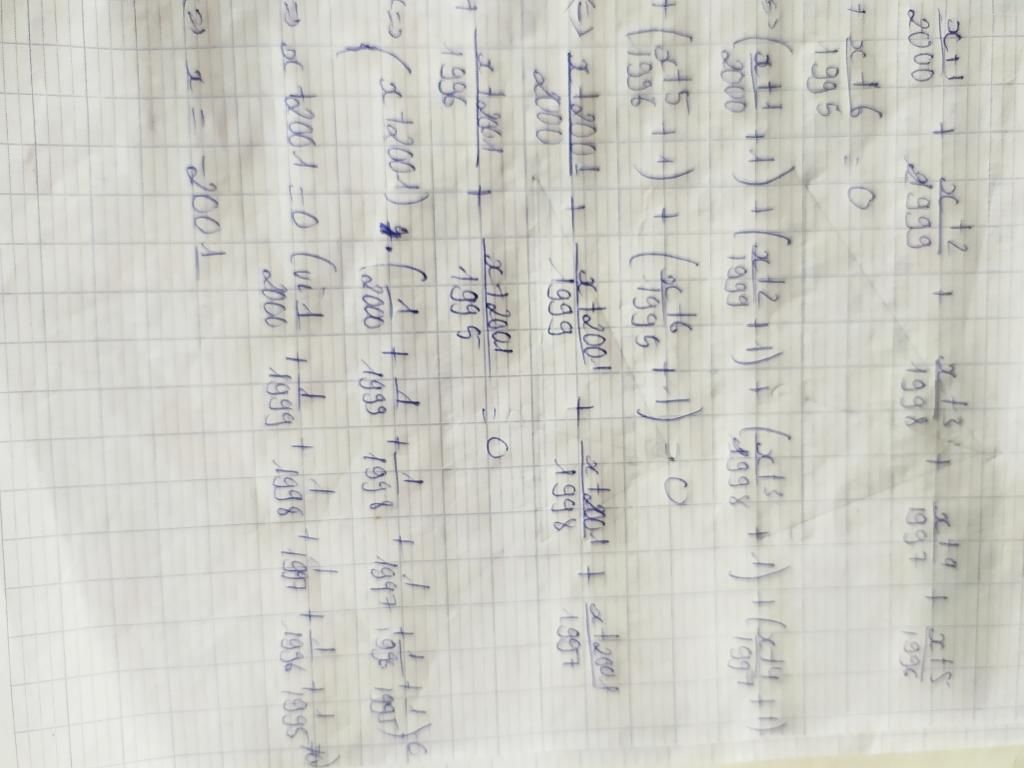 x+1/2000 + x+2/1999 + x+3/1998 + x+4/1997 + x+5/1996
+ x+6/1995 = 0
<=> (x+1/2000 + 1) + (x+2/1999 + 1) + (x+3/1998 + 1) + (x+4/1997 + 1)
+ (x+5/1996 + 1) + (x+6/1995 + 1) = 0
<=> x+2001/2000 + x+2001/1999 + x+2001/1998 + x+2001/1997
+ x+2001/1996 + x+2001/1995 = 0
<=> (x+2001) . (1/2000 + 1/1999 + 1/1998 + 1/1997 + 1/1996 + 1/1995)
=> x+2001 = 0 (vì 1/2000 + 1/1999 + 1/1998 + 1/1997 + 1/1996 + 1/1995
<=> x = -2001